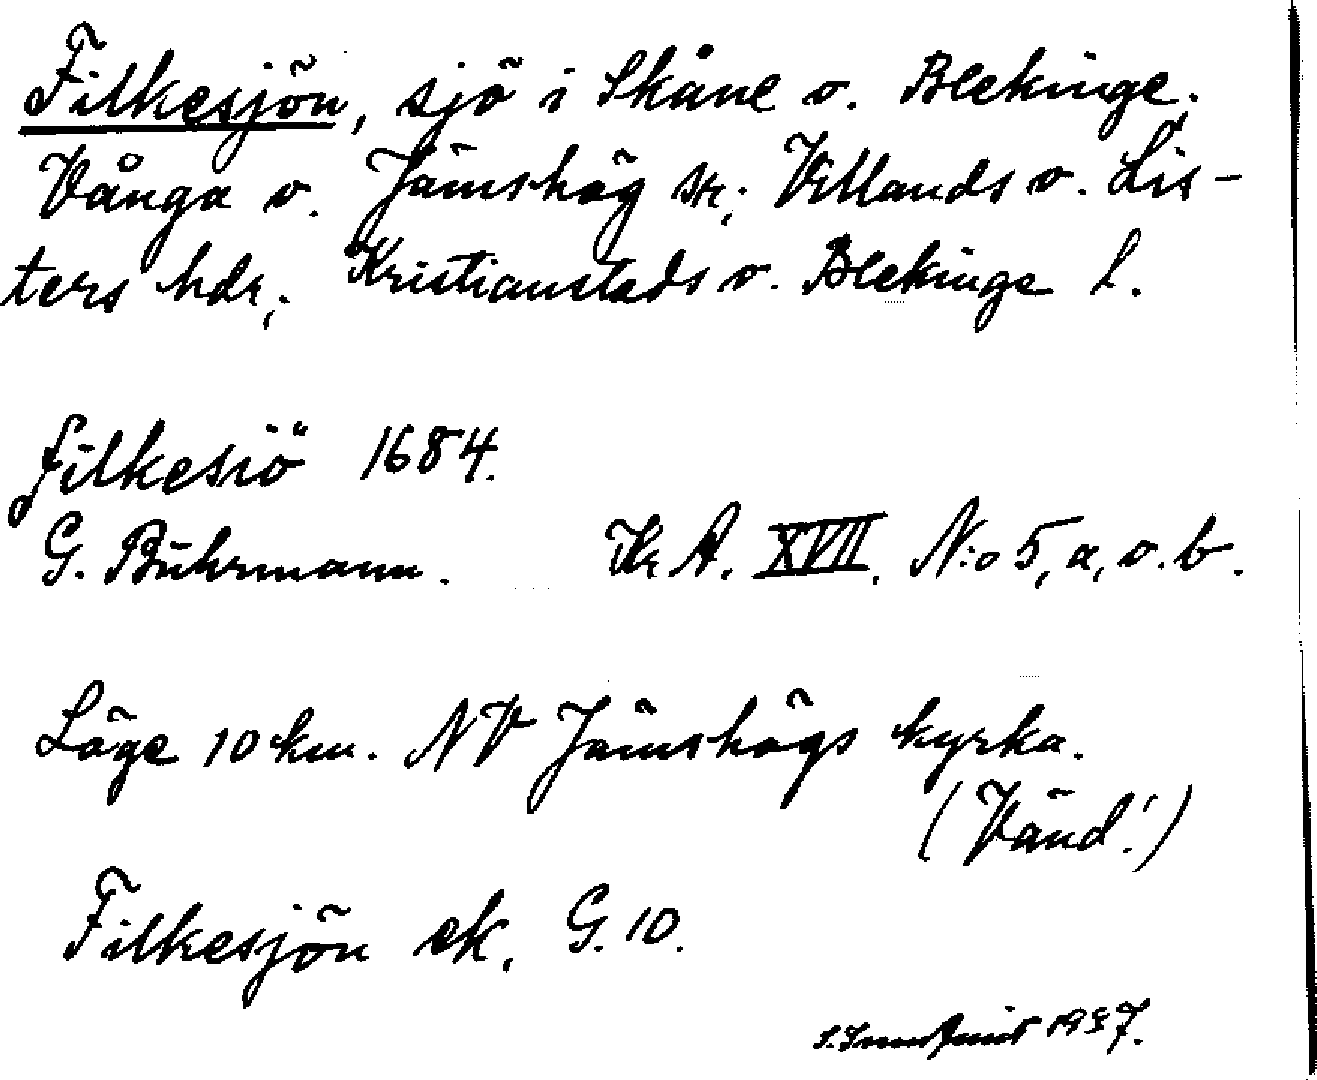 Filkesjön, sjö i Skåne o. Blekinge;
Vånga o. Jämshög sk; Villands o. Lis-
ters hdr; Kristianstads o. Blekinge l.
filkesiö 1684.
G. Buhrmann. Kr A. XVII. N:o 5, a, o. b.
Läge 10 km. NV Jämshögs kyrka.
(Vänd!)
Filkesjön ek. G. 10.
1937.